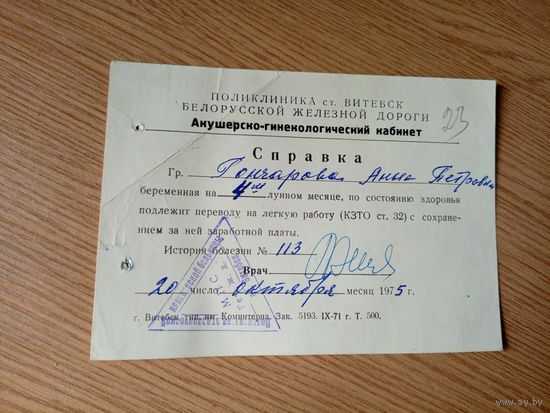 ПОЛИКЛИНИКА ст. ВИТЕБСК
БЕЛОРУССКОЙ ЖЕЛЕЗНОЙ ДОРОГИ
23
Акушерско-гинекологический кабинет
Справка
Гр. Гончарова Анна Петровна
беременная на 4ом лунном месяце, по состоянию здоровья
подлежит переводу на легкую работу (КЗТО ст. 32) с сохране-
нием за ней заработной платы.
История болезни № 113
Врач
20 число октября месяц 1975 г.
г. Витебск тип. им. Коминтерна. Зак. 5193. IX-71 г. Т. 500.
www.ay.by